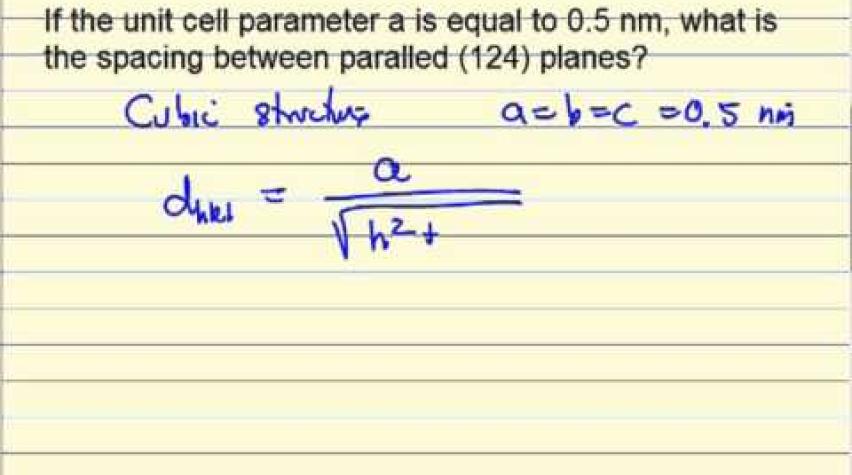 If the unit cell parameter a is equal to 0.5 nm, what is
the spacing between paralled (124) planes?
Cubic structure a=b=c =0.5 nm
d_hkl = a
√h²+